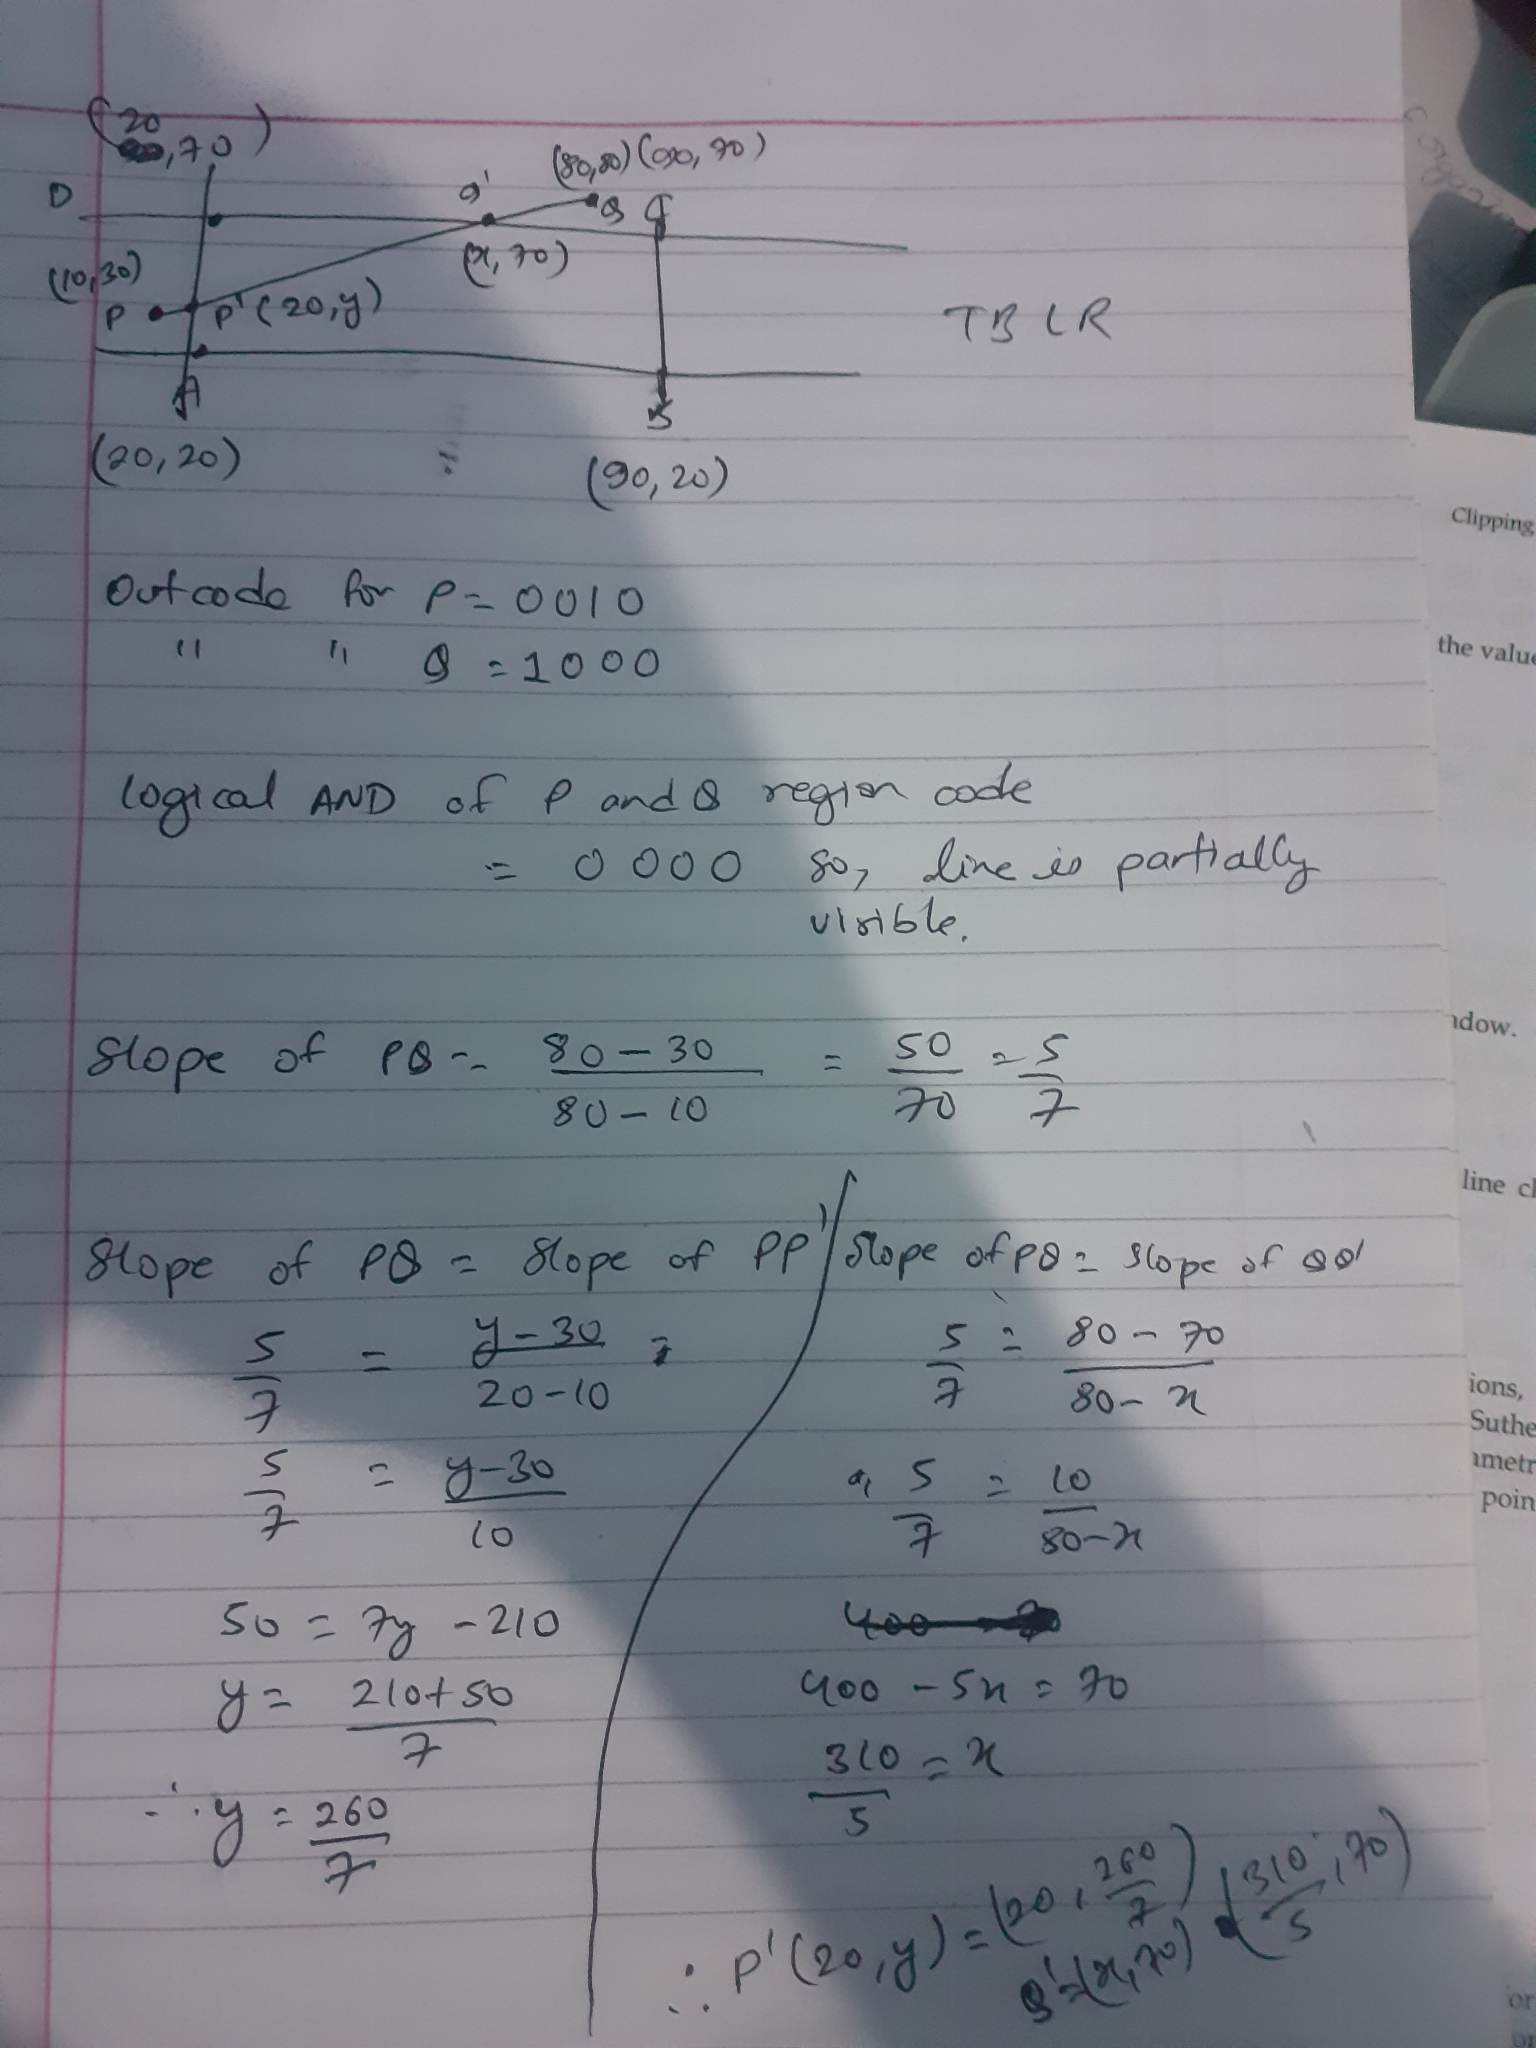 (20
,70)
(80,80) (90,70)
D
Q'
Q
C
(x,70)
(10,30)
P
P'(20,y)
TBLR
A
B
(20,20)
(90,20)
Clipping
Outcode for P = 0010
" " Q = 1000
the value
Logical AND of P and Q region code
= 0000 so, line is partially
visible.
ndow.
Slope of PQ = 80-30 / 80-10 = 50/70 = 5/7
line cl
Slope of PQ = Slope of PP'
5/7 = y-30 / 20-10
5/7 = y-30 / 10
50 = 7y - 210
y = 210+50 / 7
∴ y = 260/7
Slope of PQ = Slope of QQ'
5/7 = 80-70 / 80-x
5/7 = 10 / 80-x
400 - 5x = 70
310/5 = x
∴ P'(20,y) = (20, 260/7)
Q'=(x,70) (310/5, 70)
ions,
Suthe
ametr
poin
or